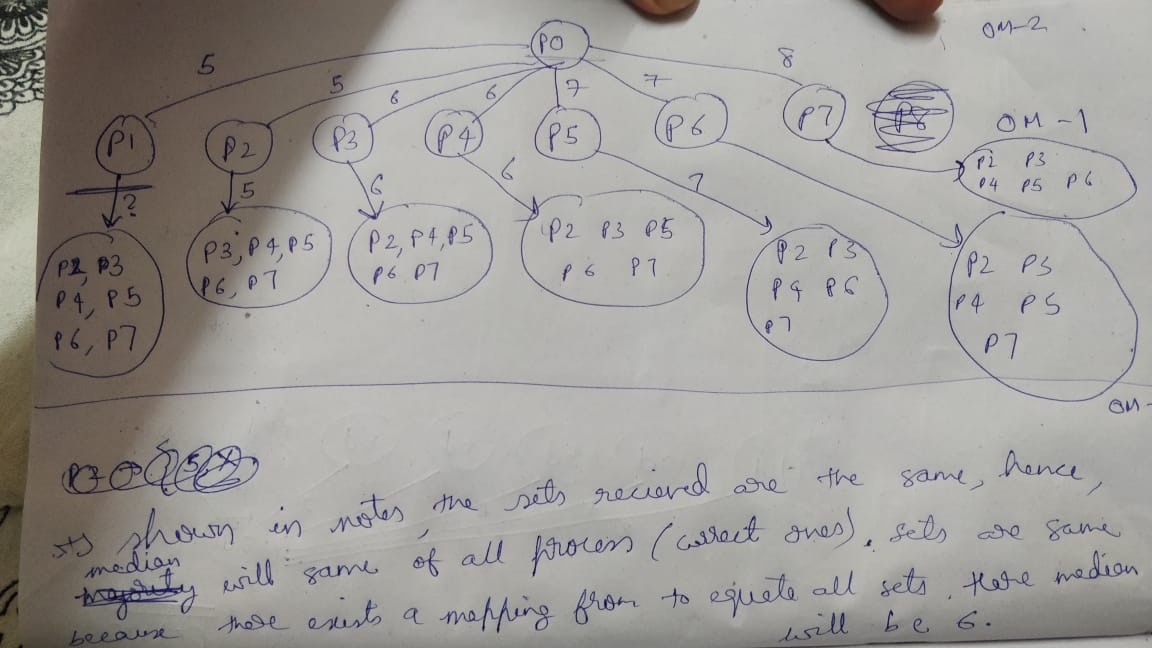 OM-2
P0
5 5 6 6 7 7 8
P1 P2 P3 P4 P5 P6 P7
OM-1
? 5 6 6 7
P2 P3
P4 P5 P6
P2, P3
P4, P5
P6, P7
P3, P4, P5
P6, P7
P2, P4, P5
P6 P7
P2 P3 P5
P6 P7
P2 P3
P4 P6
P7
P2 P3
P4 P5
P7
OM-
As shown in notes, the sets recieved are the same, hence,
median will same of all process (correct ones). sets are same
because there exists a mapping from to equate all sets. Here median
will be 6.